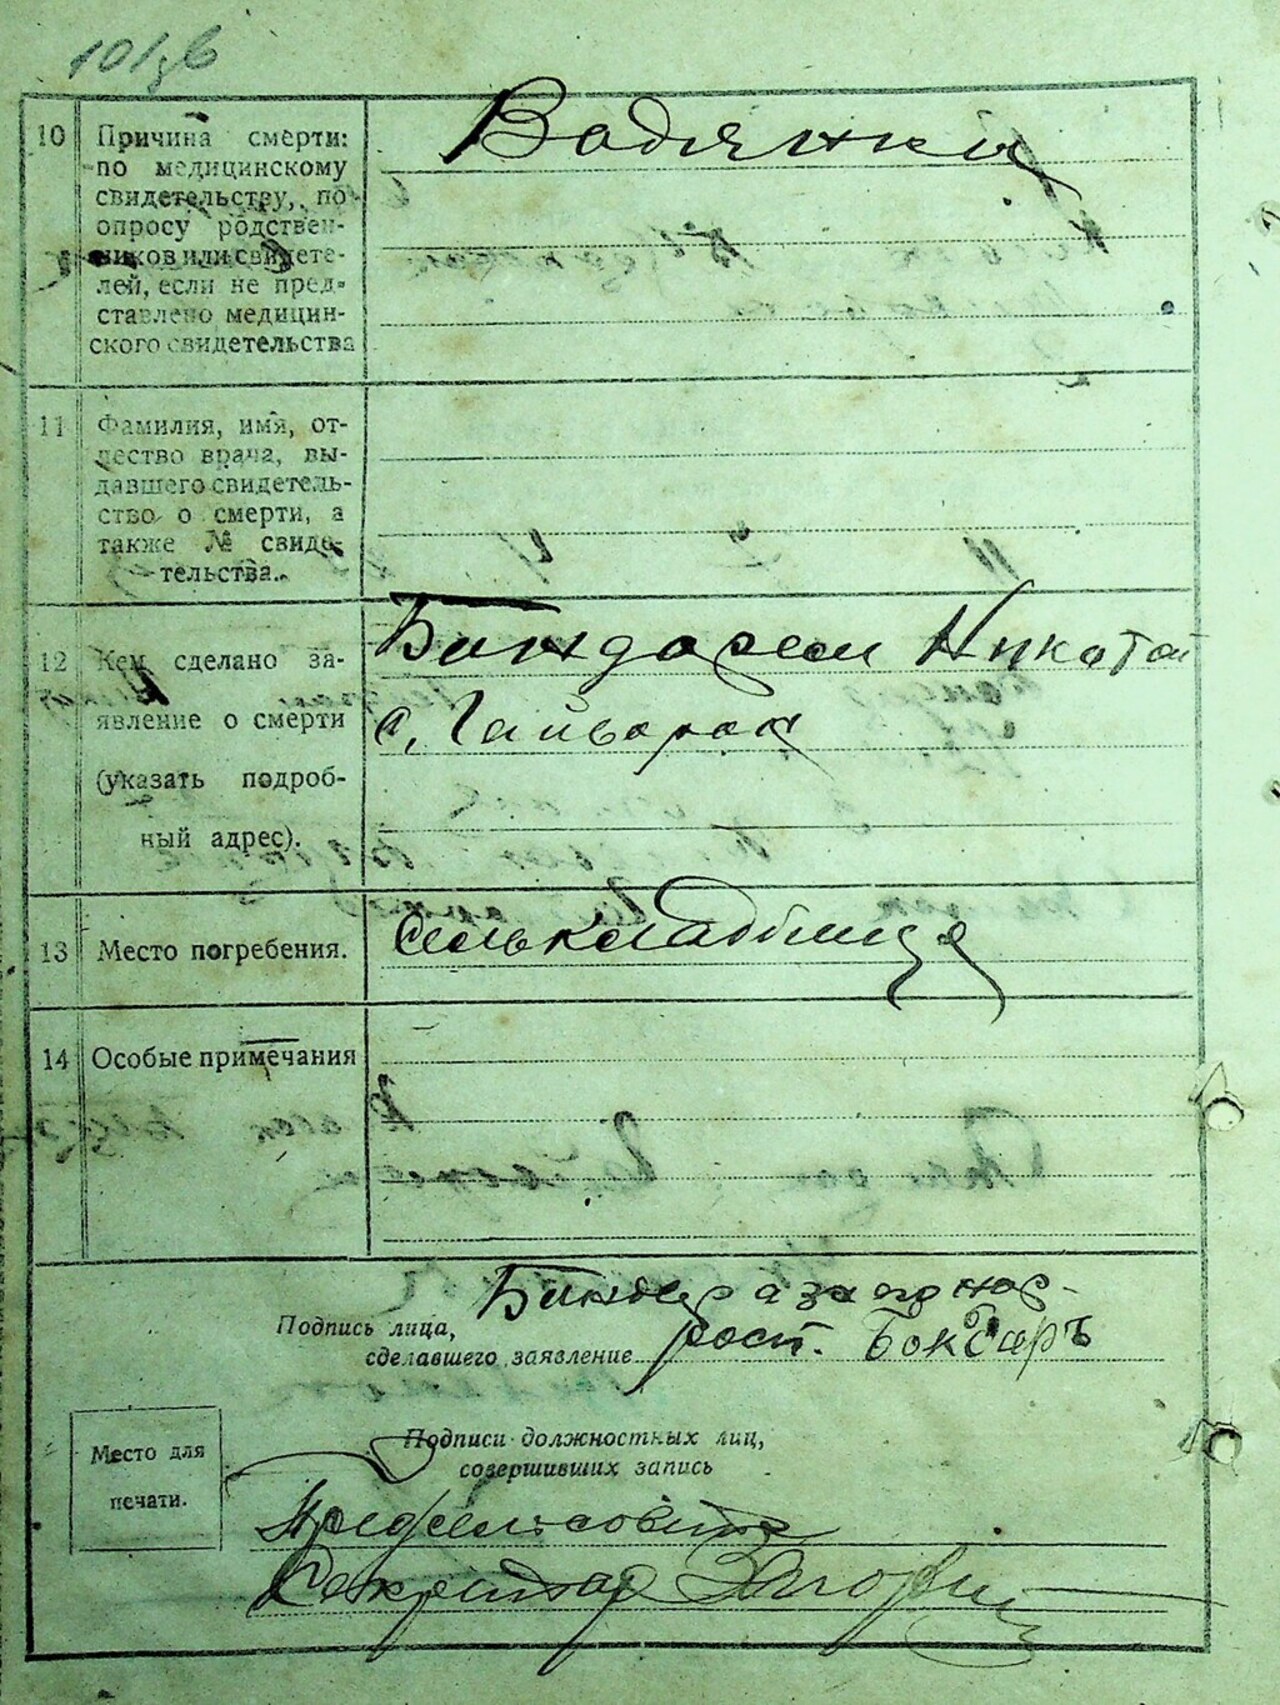 10
Причина смерти:
по медицинскому
свидетельству, по
опросу родствен-
ников или свидете-
лей, если не пред-
ставлено медицин-
ского свидетельства
Водянка
11
Фамилия, имя, от-
чество врача, вы-
давшего свидетель-
ство о смерти, а
также № свиде-
тельства.
12
Кем сделано за-
явление о смерти
(указать подроб-
ный адрес).
Николай
с. Гайворон
13
Место погребения.
сельськладбище
14
Особые примечания
Подпись лица,
сделавшего заявление
Место для
печати.
Подписи должностных лиц,
совершивших запись
Предсельсовета
Секретар